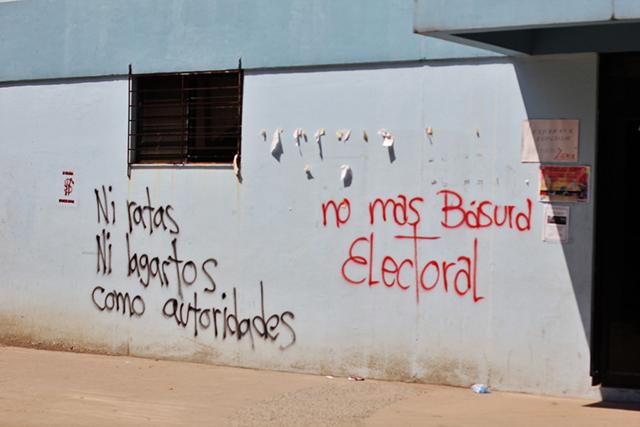 Ni ratas
Ni lagartos
como autoridades
no mas Básurd
Electoral